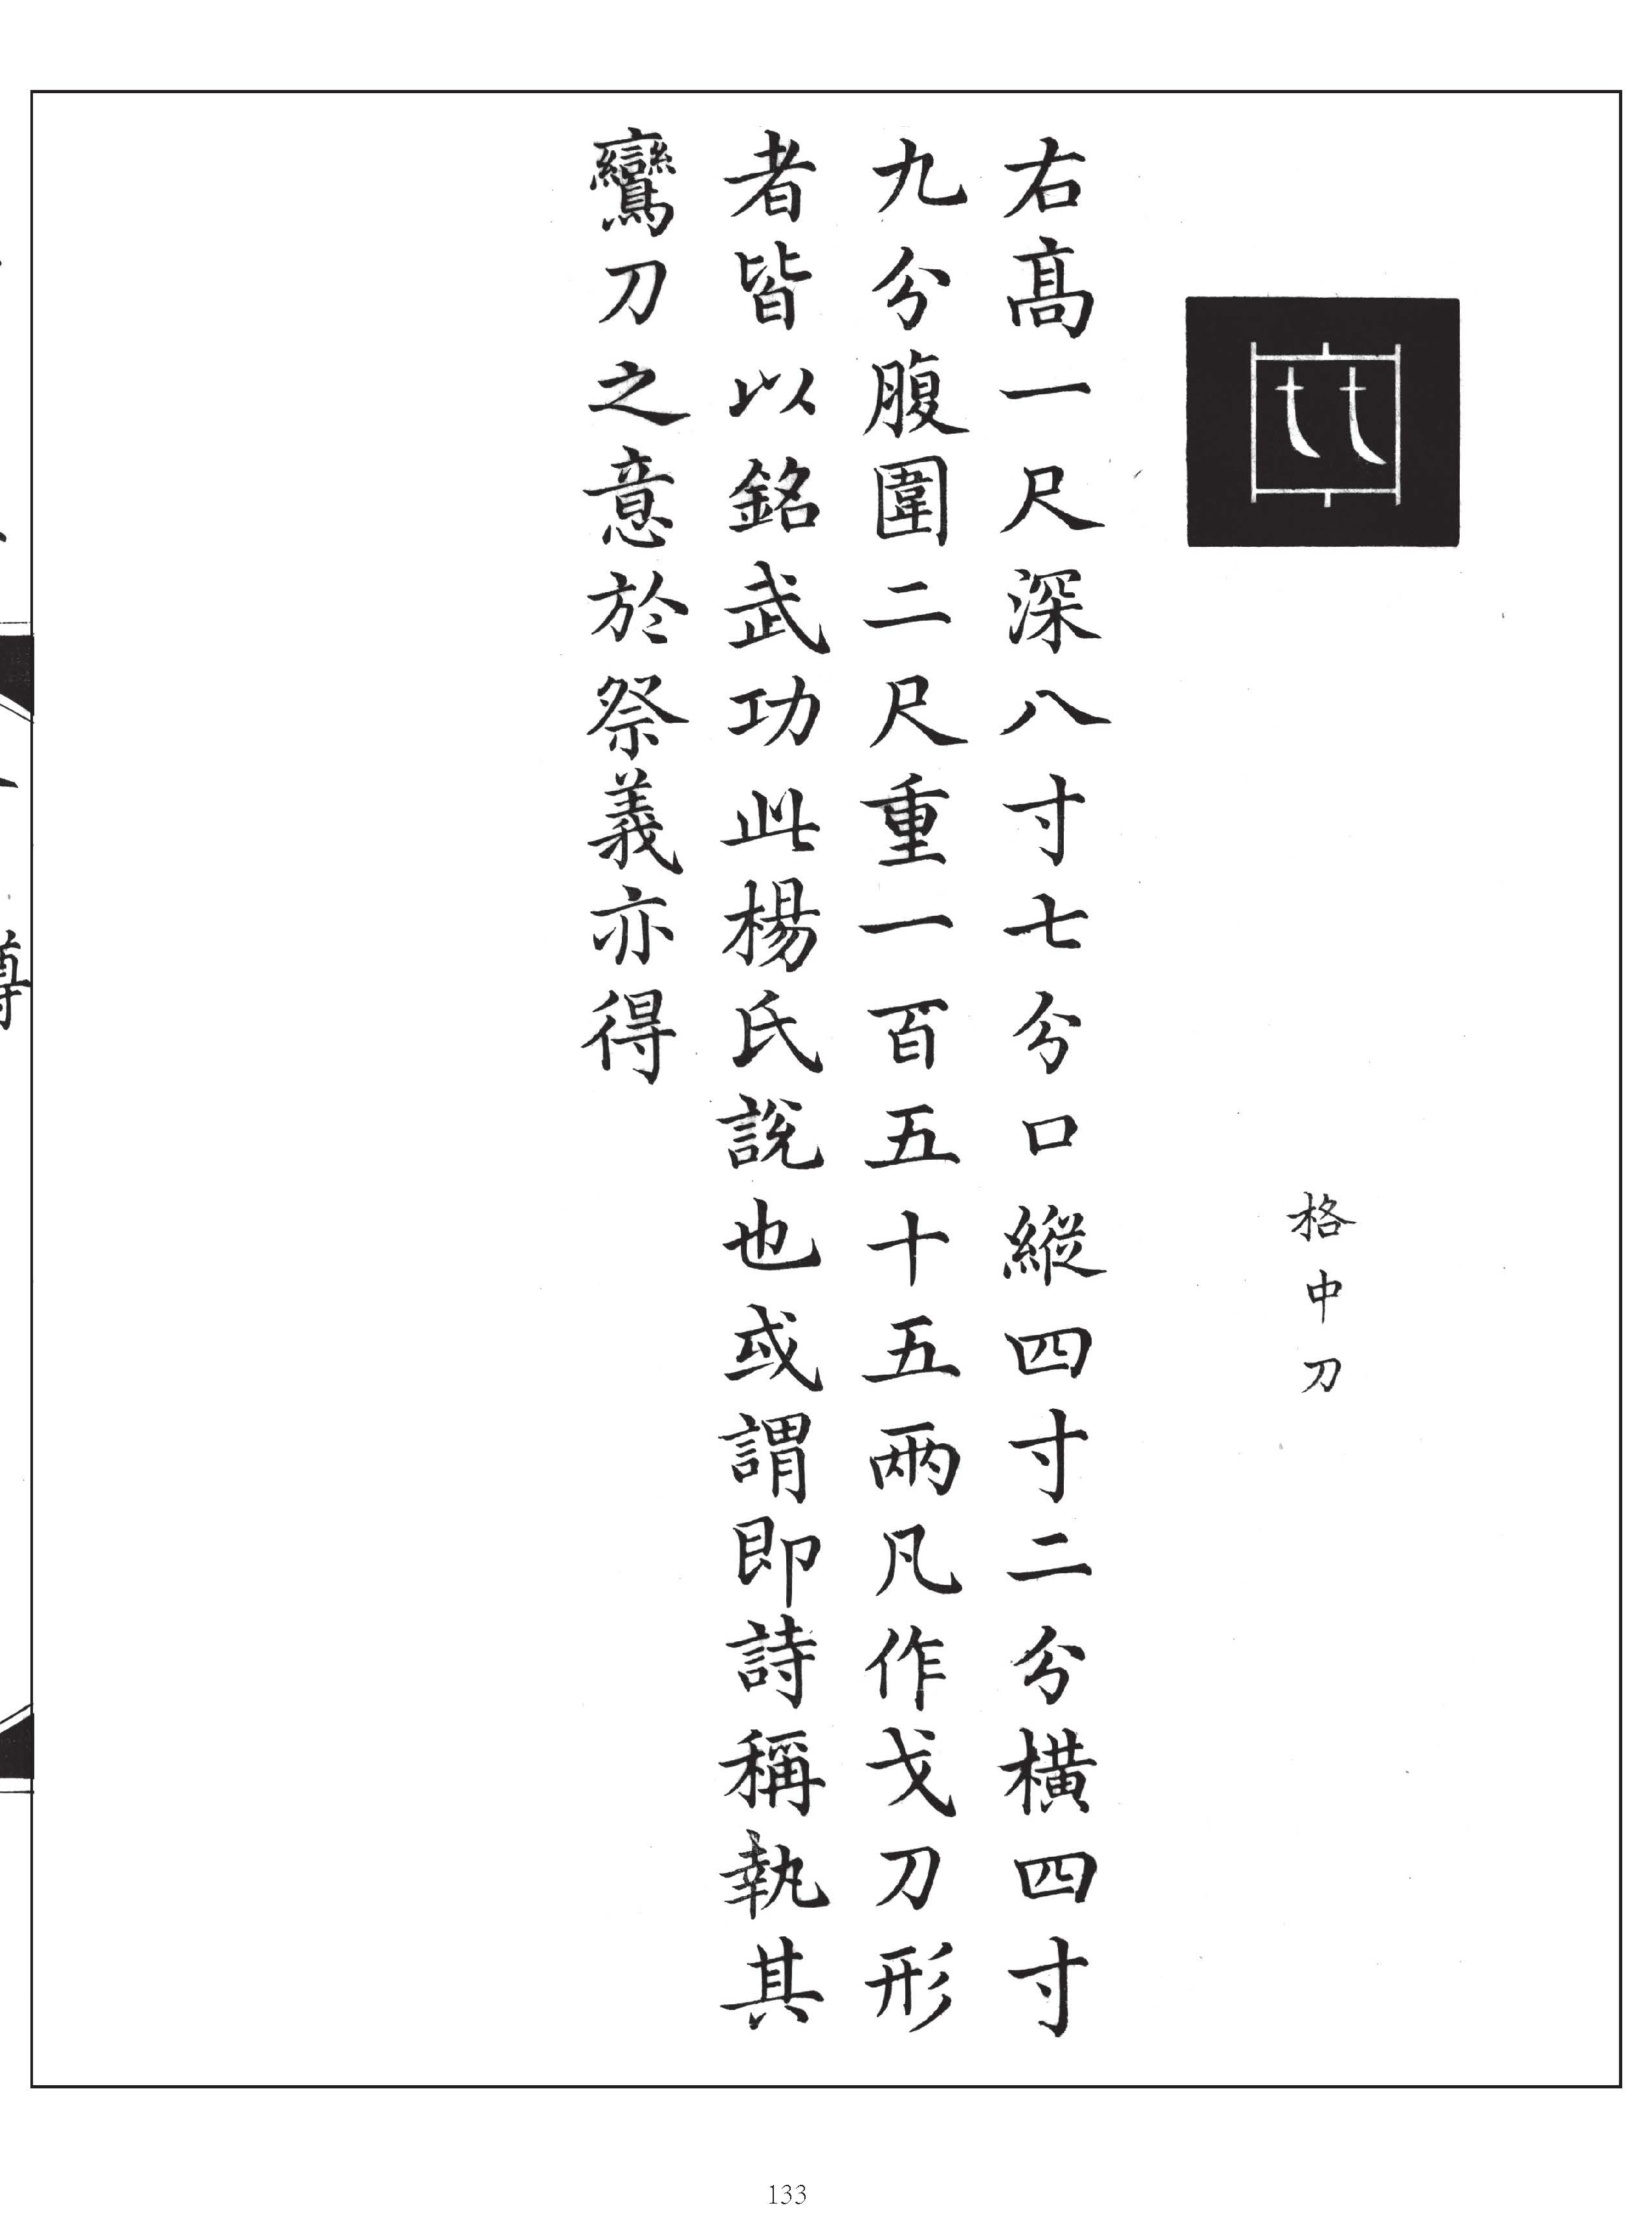 格中刀
右高一尺深八寸七分口縱四寸二分橫四寸
九分腹圍二尺重一百五十五兩凡作戈刀形
者皆以銘武功此楊氏說也或謂即詩稱執其
鸞刀之意於祭義亦得
尊
133